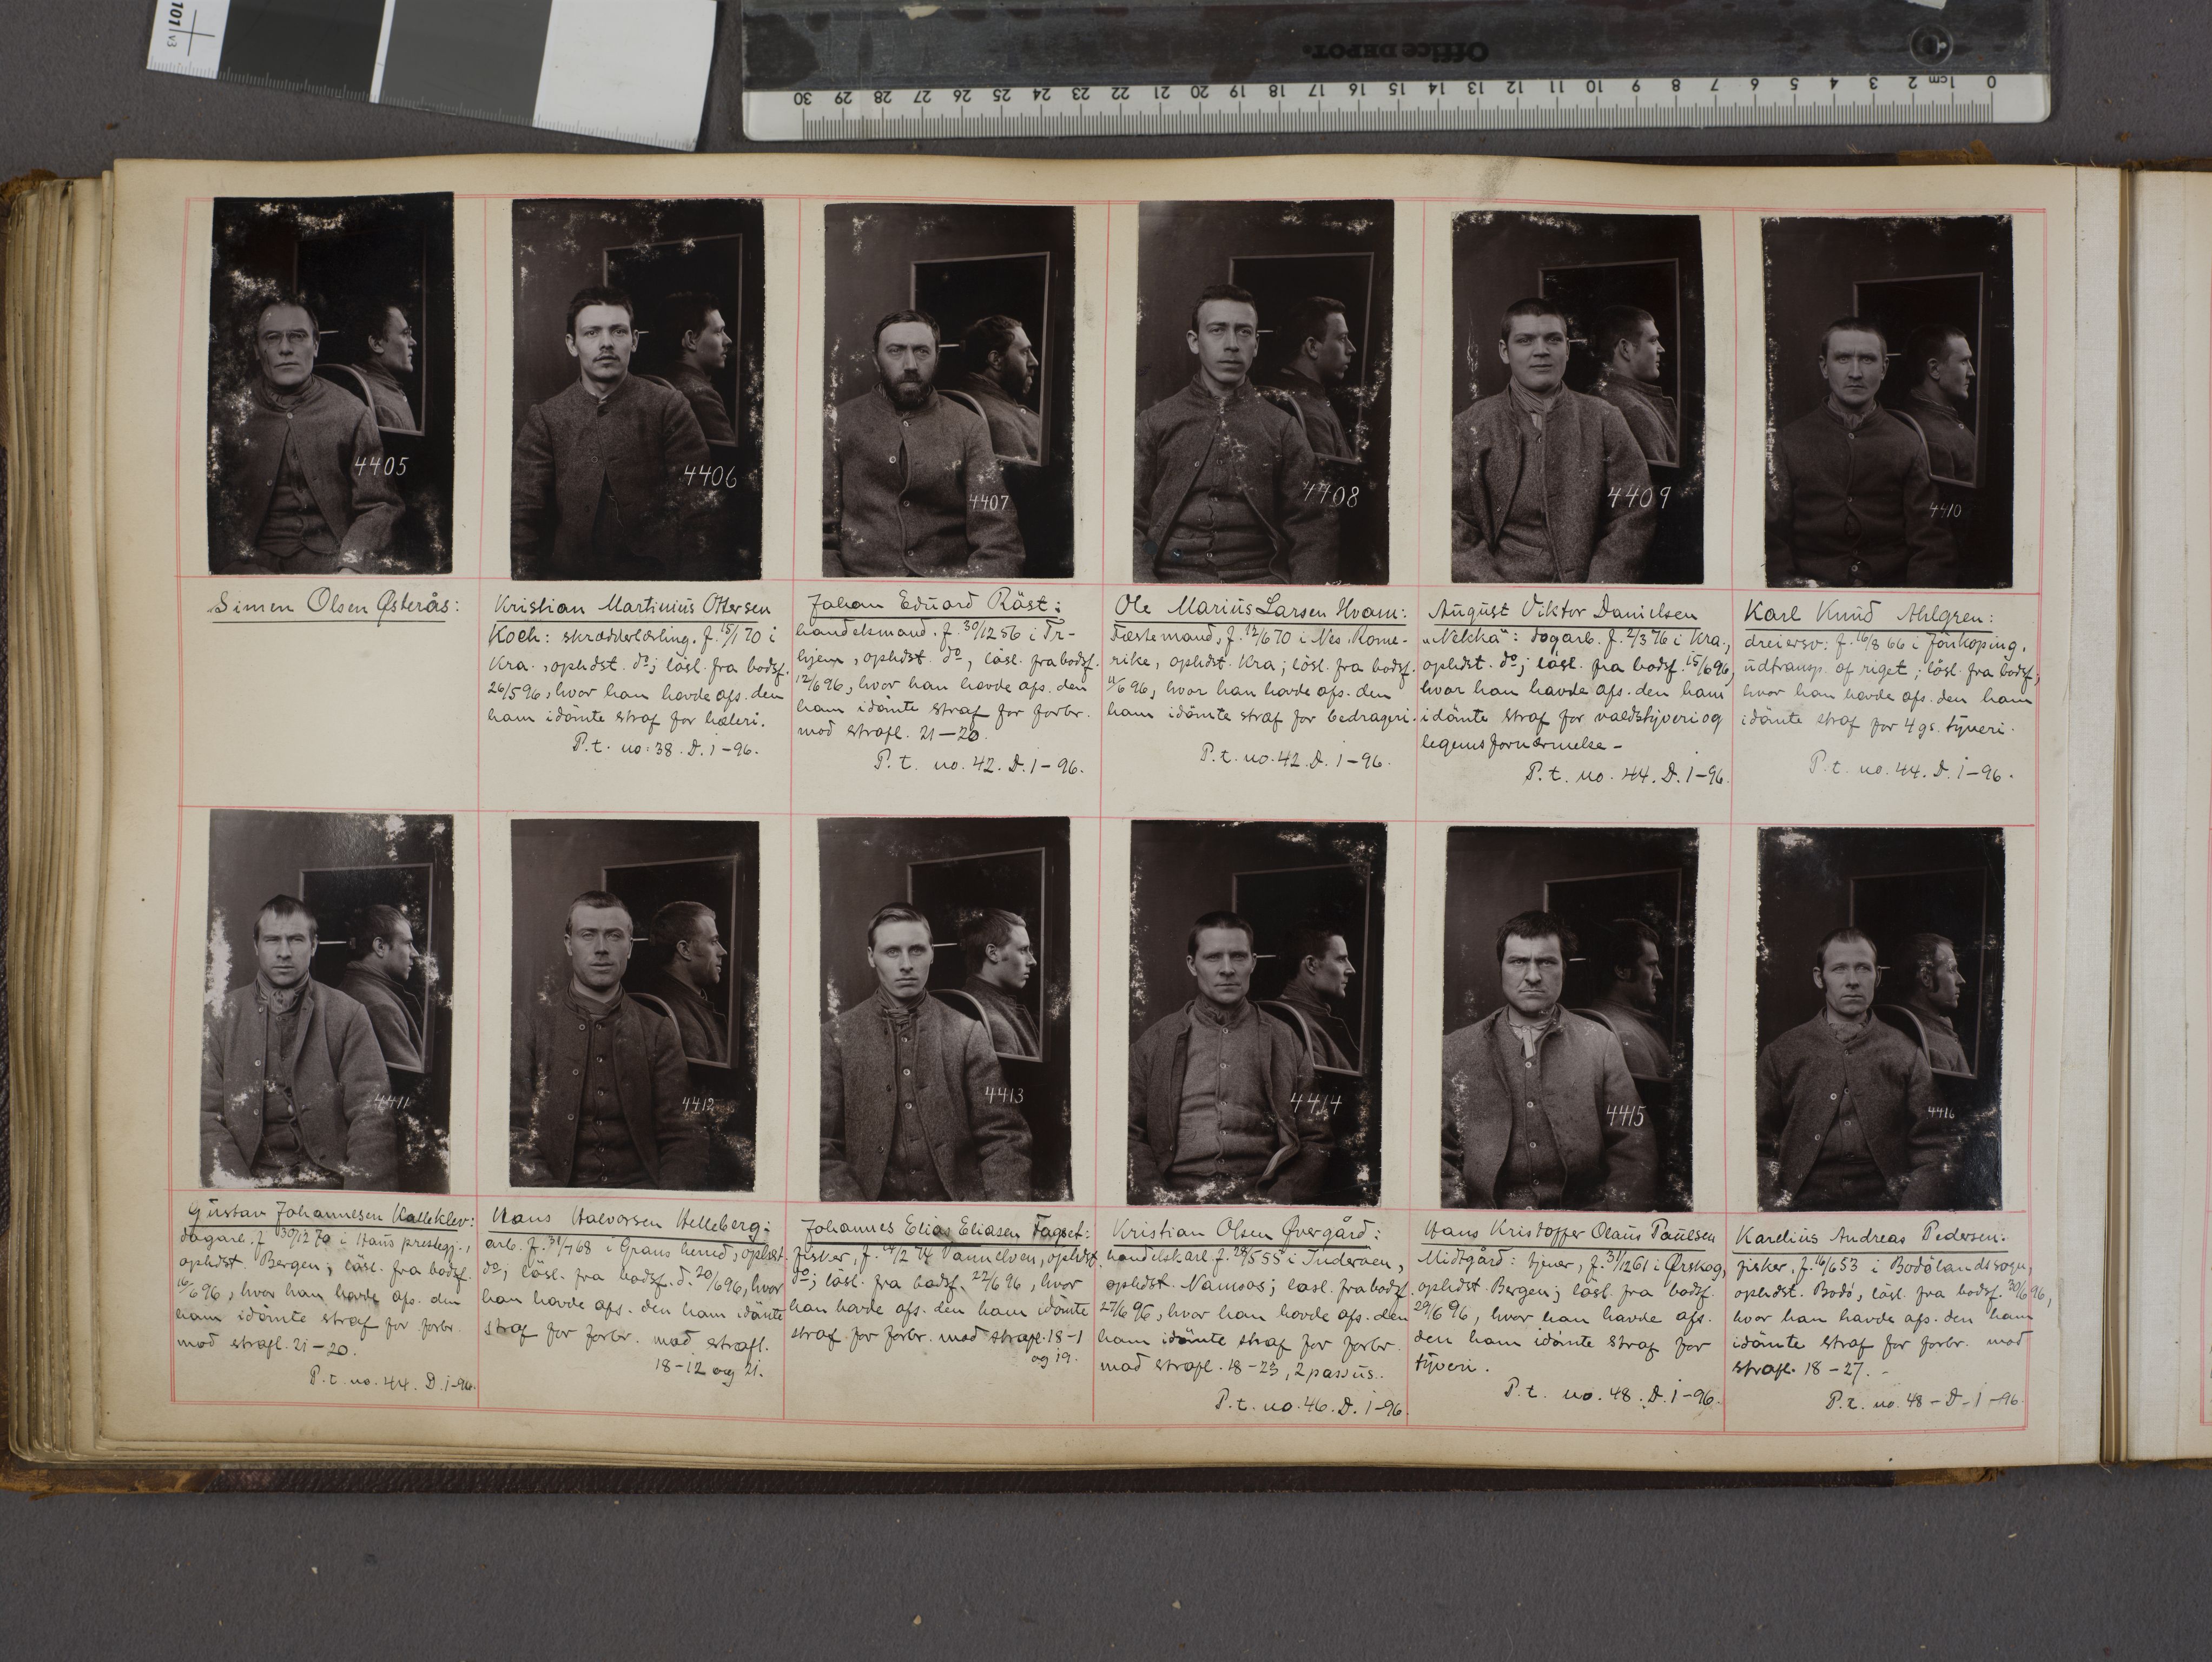 101 v3
Office DEPOT.
0 1cm 2 3 4 5 6 7 8 9 10 11 12 13 14 15 16 17 18 19 20 21 22 23 24 25 26 27 28 29 30
4405
Simen Olsen Østerås:
4406
Kristian Martinius Ottersen
Koch: skrædderlærling. f. 15/1 70 i
Kra., opholdst. do; lösl. fra bodsf.
26/5 96, hvor han havde afs. den
ham idömte straf for hæleri.
P.t. no: 38. D. i-96.
4407
Johan Eduard Räst:
handelsmand. f. 30/12 56 i Tr-
hjem, ophdst. do, lösl. fra bodsf.
12/6 96, hvor han havde afs. den
ham idömte straf for forbr.
mod strafl. 21-20.
P.t. no. 42. D. i-96.
4408
Ole Marius Larsen Hvam:
Fæstemand, f. 12/6 70 i Nes. Rome-
rike, ophdst. Kra; lösl. fra bodsf.
11/6 96, hvor han havde afs. den
ham idömte straf for bedrageri.
P.t. no. 42. D. i-96.
4409
August Viktor Danielsen
„Nekka": dagarb. f. 2/3 76 i Kra.,
ophdst. do; lösl. fra bodsf. 15/6 96,
hvor han havde afs. den ham
idömte straf for valdstyveri og
legemsfornærmelse -
P.t. no. 44. D. i-96.
4410
Karl Knud Ahlgren:
dreiersv: f. 16/8 66 i Jönköping.
udtransp. af riget; lösl. fra bodsf,
hvor han havde afs. den ham
idömte straf for 4 gs. tyveri.
P.t. no. 44. D. i-96.
4411
Gustav Johannesen Kalleklev:
dagarb. f 30/12 70 i Haus prestegj.,
ophdst. Bergen; lösl. fra bodsf.
16/6 96, hvor han havde afs. den
ham idömte straf for forbr.
mod strafl. 21-20.
P.t. no. 44. D. i-96.
4412
Hans Halvorsen Helleberg:
arb. f. 31/7 68 i Grans herred, ophdst.
do; lösl. fra bodsf. d. 20/6 96, hvor
han havde afs. den ham idömte
straf for forbr. mod strafl.
18-12 og 21.
4413
Johannes Elias Eliasen Fagset:
fisker, f. 14/2 74 Vannelven, ophdst
do; lösl. fra bodsf. 22/6 96, hvor
han havde afs. den ham idömte
straf for forbr. mod strafl. 18-1
og 19.
4414
Kristian Olsen Øvergård:
handelskarl f. 28/5 55 i Inderøen,
ophdst. Namsos; lösl. fra bodsf.
27/6 96, hvor han havde afs. den
ham idömte straf for forbr.
mod strafl. 18-23, 2 passus.
P.t. no. 46. D. i-96.
4415
Hans Kristoffer Olaus Paulsen
Midtgård: tjener, f. 31/12 61 i Ørskog,
ophdst. Bergen; lösl. fra bodsf.
29/6 96, hvor han havde afs.
den ham idömte straf for
tyveri.
P.t. no. 48. D. i-96.
4416
Karelius Andreas Pedersen:
fisker. f. 16/6 53 i Bodölandssogn,
ophdst. Bodö, lösl. fra bodsf. 30/6 96,
hvor han havde afs. den ham
idömte straf for forbr. mod
strafl. 18-27.-
P.t. no. 48-D-i-96.